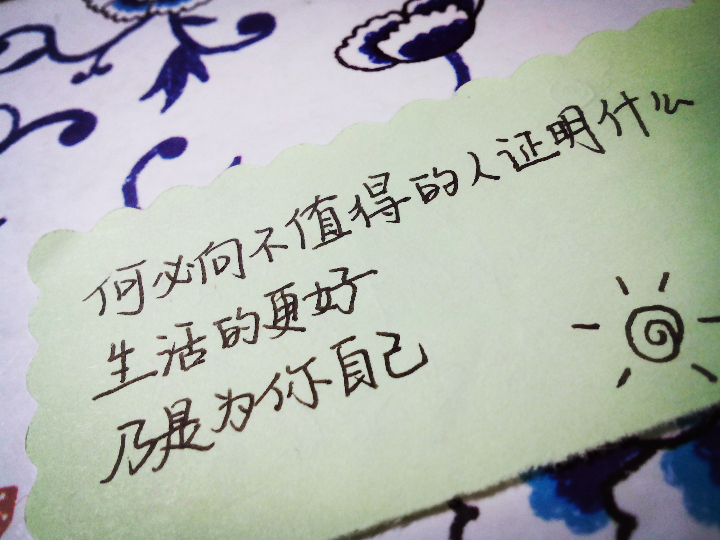 何必向不值得的人证明什么
生活的更好
乃是为你自己